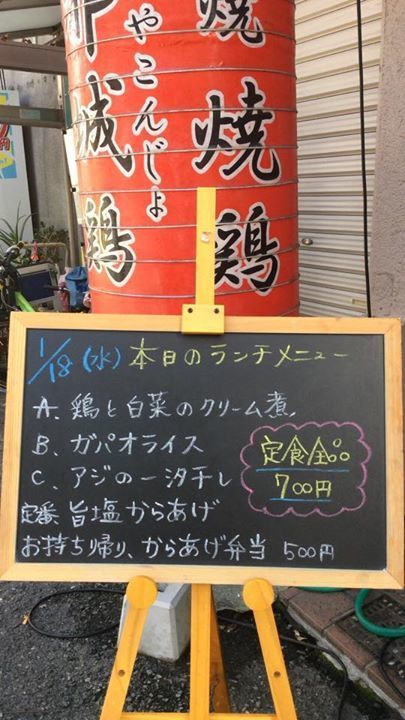 焼焼鶏
城鶏
やこんじょ
1/18(水) 本日のランチメニュー
A、鶏と白菜のクリーム煮。
B、ガパオライス
C、アジの一汐干し
定食全品
700円
定番 旨塩からあげ
お持ち帰り、からあげ弁当 500円